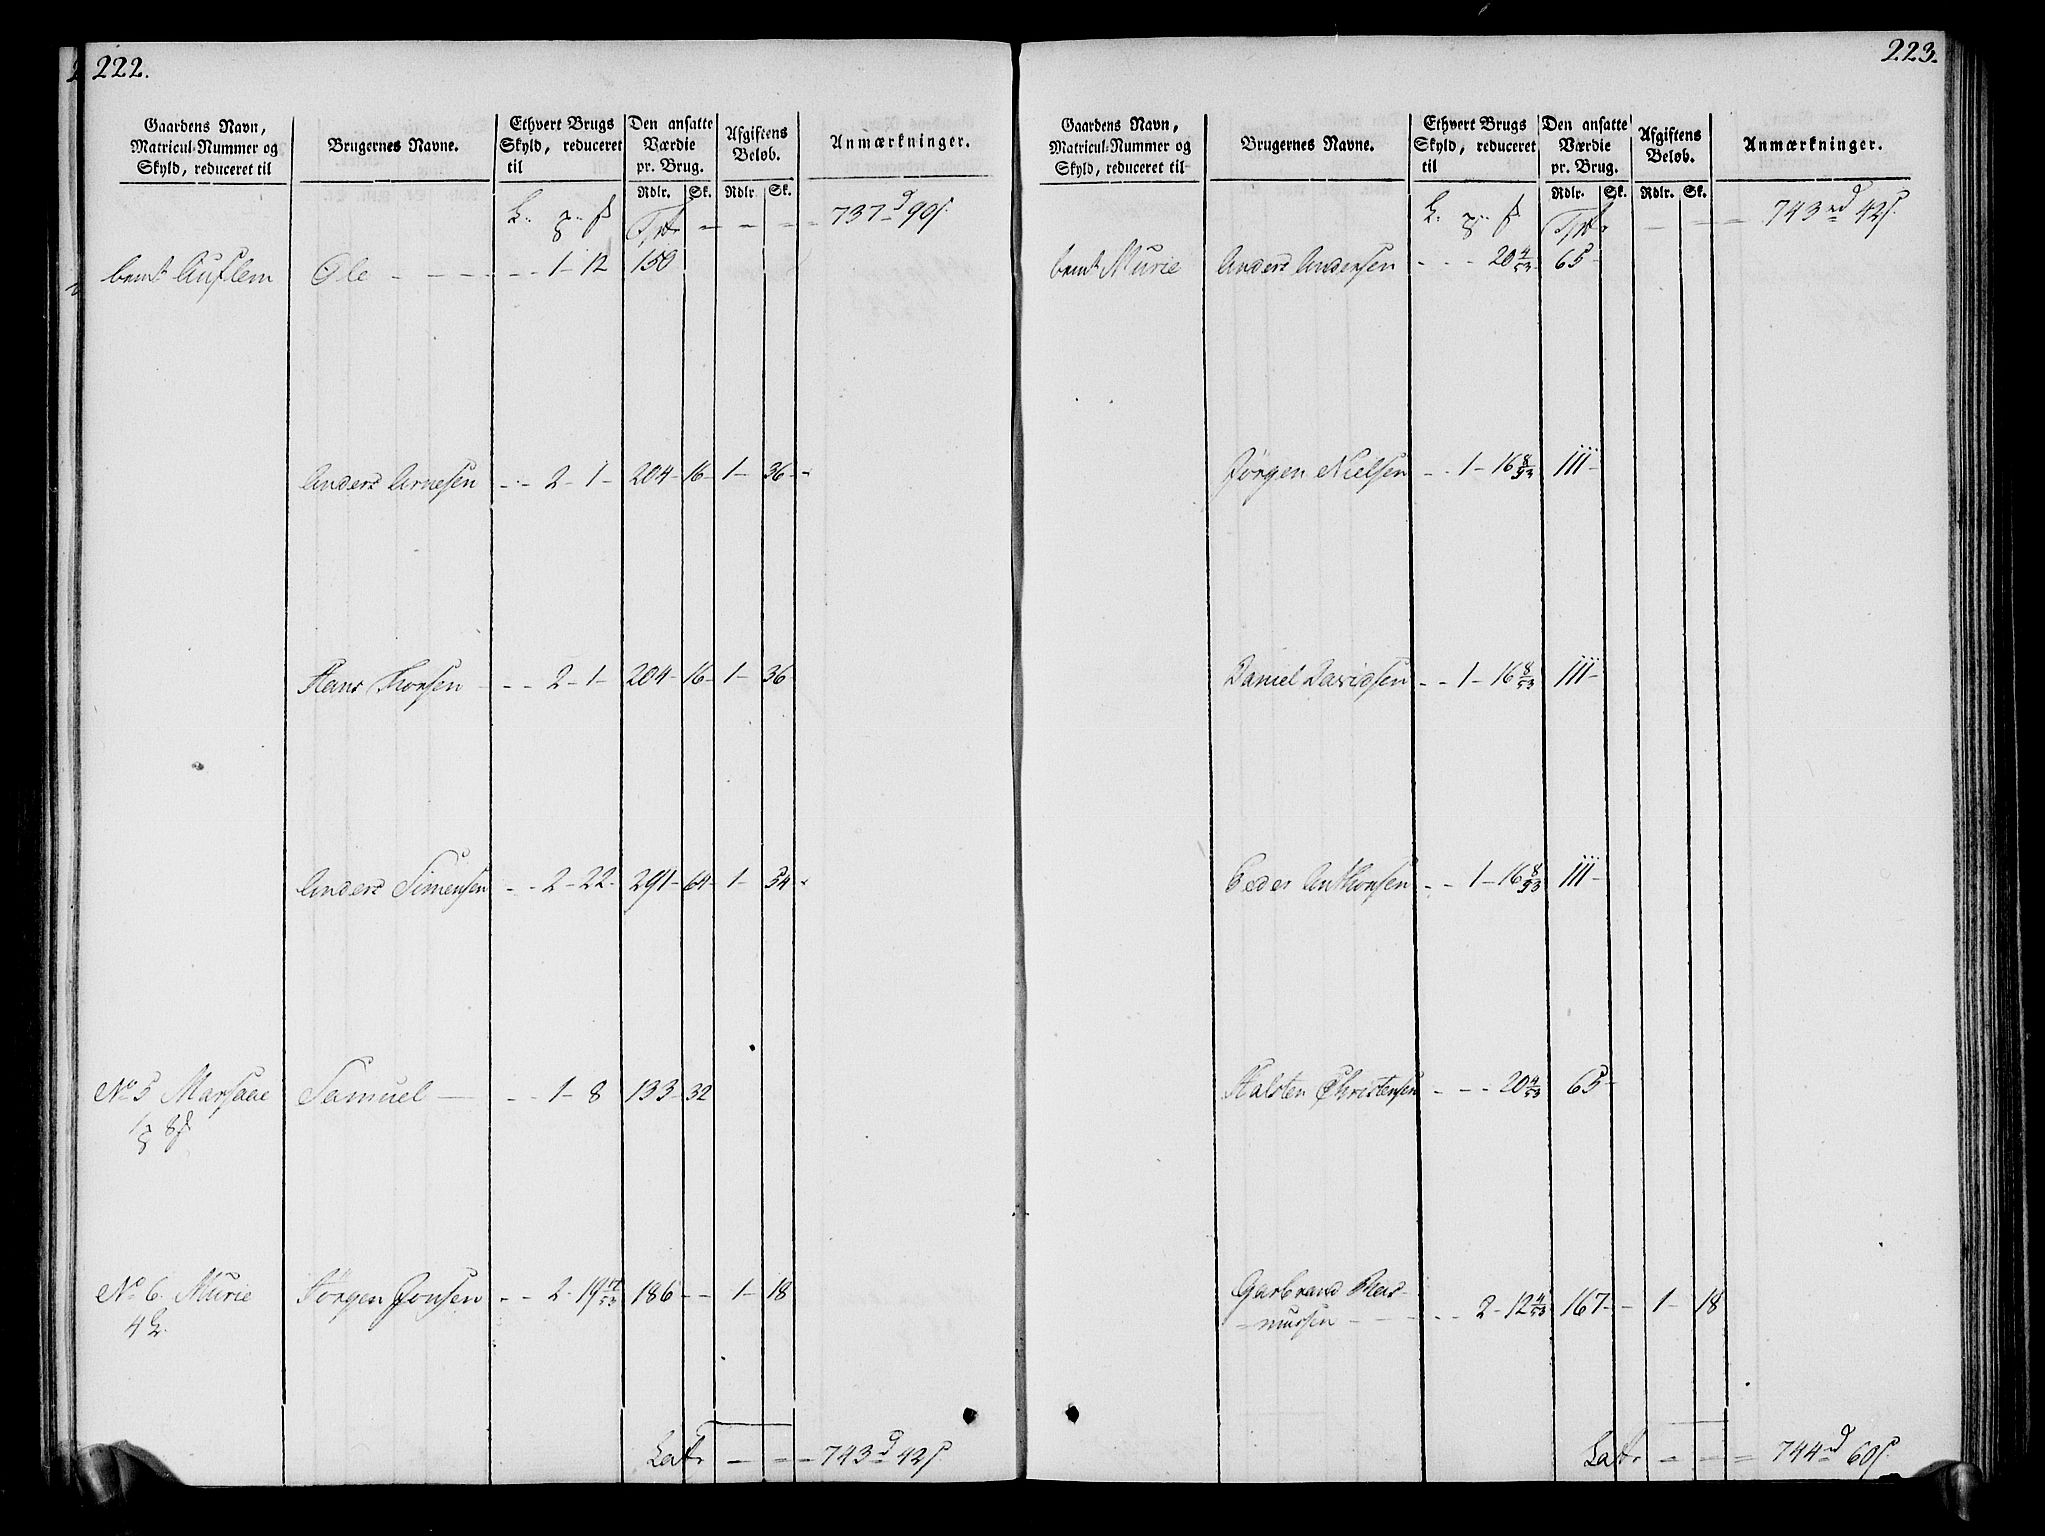 222.
Gaardens Navn, Matricul-Nummer og Skyld, reduceret til
Brugernes Navne.
Ethvert Brugs Skyld, reduceret til
Den ansatte Værdie pr. Brug.
Afgiftens Beløb.
Anmærkninger.
Rdlr. Sk. Rdlr. Sk.
737 d 90 s.
bemt Auflem Ole - - - - 1 - 12 150
Anders Arnesen - - 2 - 1 - 204 - 16 - 1 - 36 -
Hans Thorsen - - - 2 - 1 - 204 - 16 - 1 - 36
Anders Simensen - - 2 - 22 - 291 - 64 - 1 - 54
No 5 Marsaae Samuel - - - 1 - 8 133 - 32
1 8
No 6. Murie Jørgen Jonsen - - 2 - 19 186 - - 1 - 18
4
Latr - - - 743 d 42 s.
223.
Gaardens Navn, Matricul-Nummer og Skyld, reduceret til
Brugernes Navne.
Ethvert Brugs Skyld, reduceret til
Den ansatte Værdie pr. Brug.
Afgiftens Beløb.
Anmærkninger.
Rdlr. Sk. Rdlr. Sk.
743 rd 42 s.
bemt Murie Anders Andersen - - - 20 4/53 65 -
Jørgen Nielsen - - 1 - 16 8/53 111 -
Daniel Davidsen - - 1 - 16 8/53 111 -
Peder Anthonsen - - 1 - 16 8/53 111 -
Halsten Christensen - - - 20 4/53 65 -
Garbrand Ras-
= mussen - - - - 2 - 12 4/53 167 - - 1 - 18
Latr - - = 744 rd 60 s.